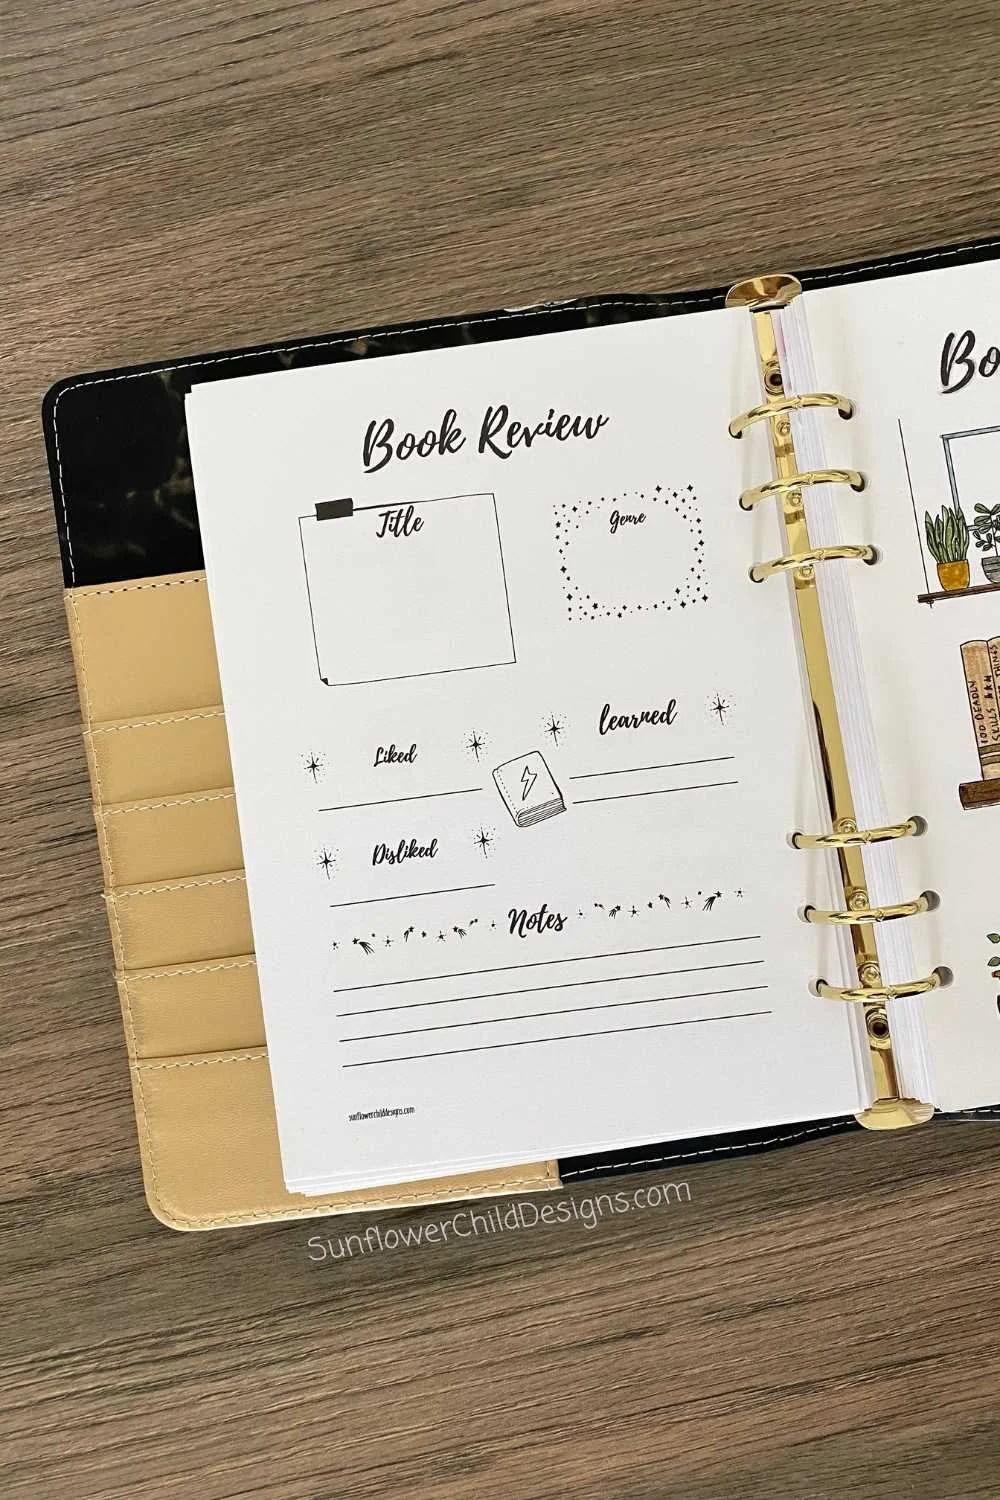 Book Review
Title
Genre
Liked
learned
Disliked
Notes
sunflowerchilddesigns.com
Bo
100 DEADLY
SKILLS
THINGS
SunflowerChildDesigns.com